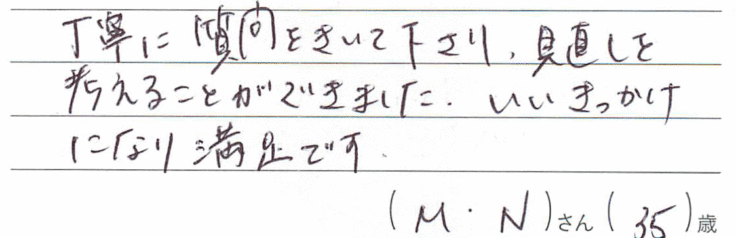 丁寧に質問をきいて下さり、見直しを
考えることができました。いいきっかけ
になり満足です。
(M・N)さん(35)歳